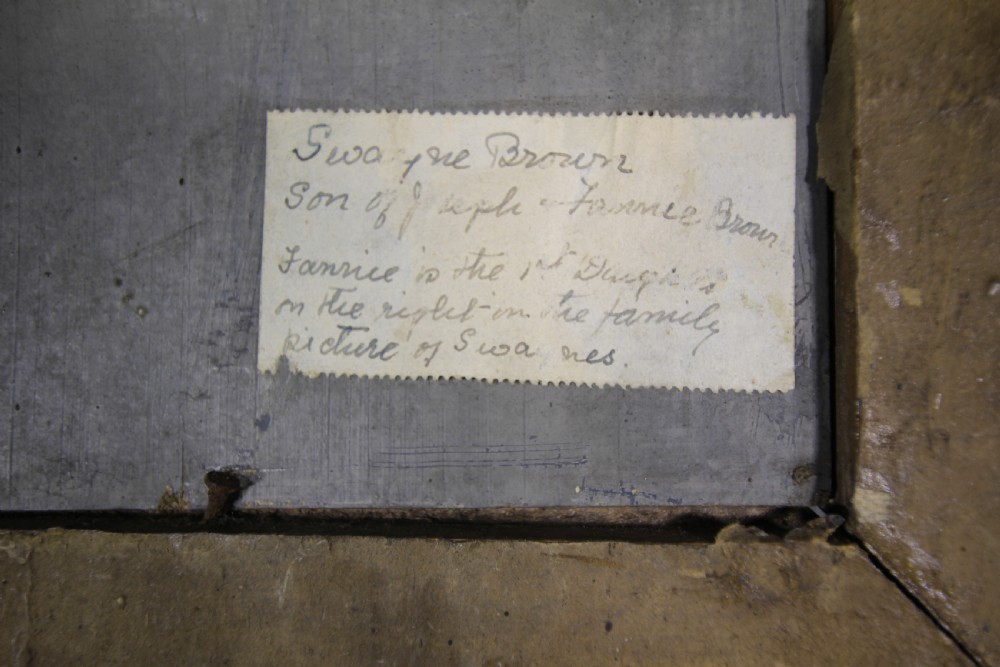 Swayne Brown
Son of Joseph & Fannie Brown
Fannie is the 1st Daughter
on the right in the family
picture of Swaynes.